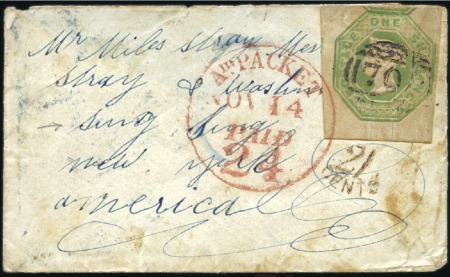 Mr Miles Stray Mer
Stray & Washin
Sing Sing
New York
America
PACKET
NOV 14
SHIP
24
ONE SHILLING
21
CENTS